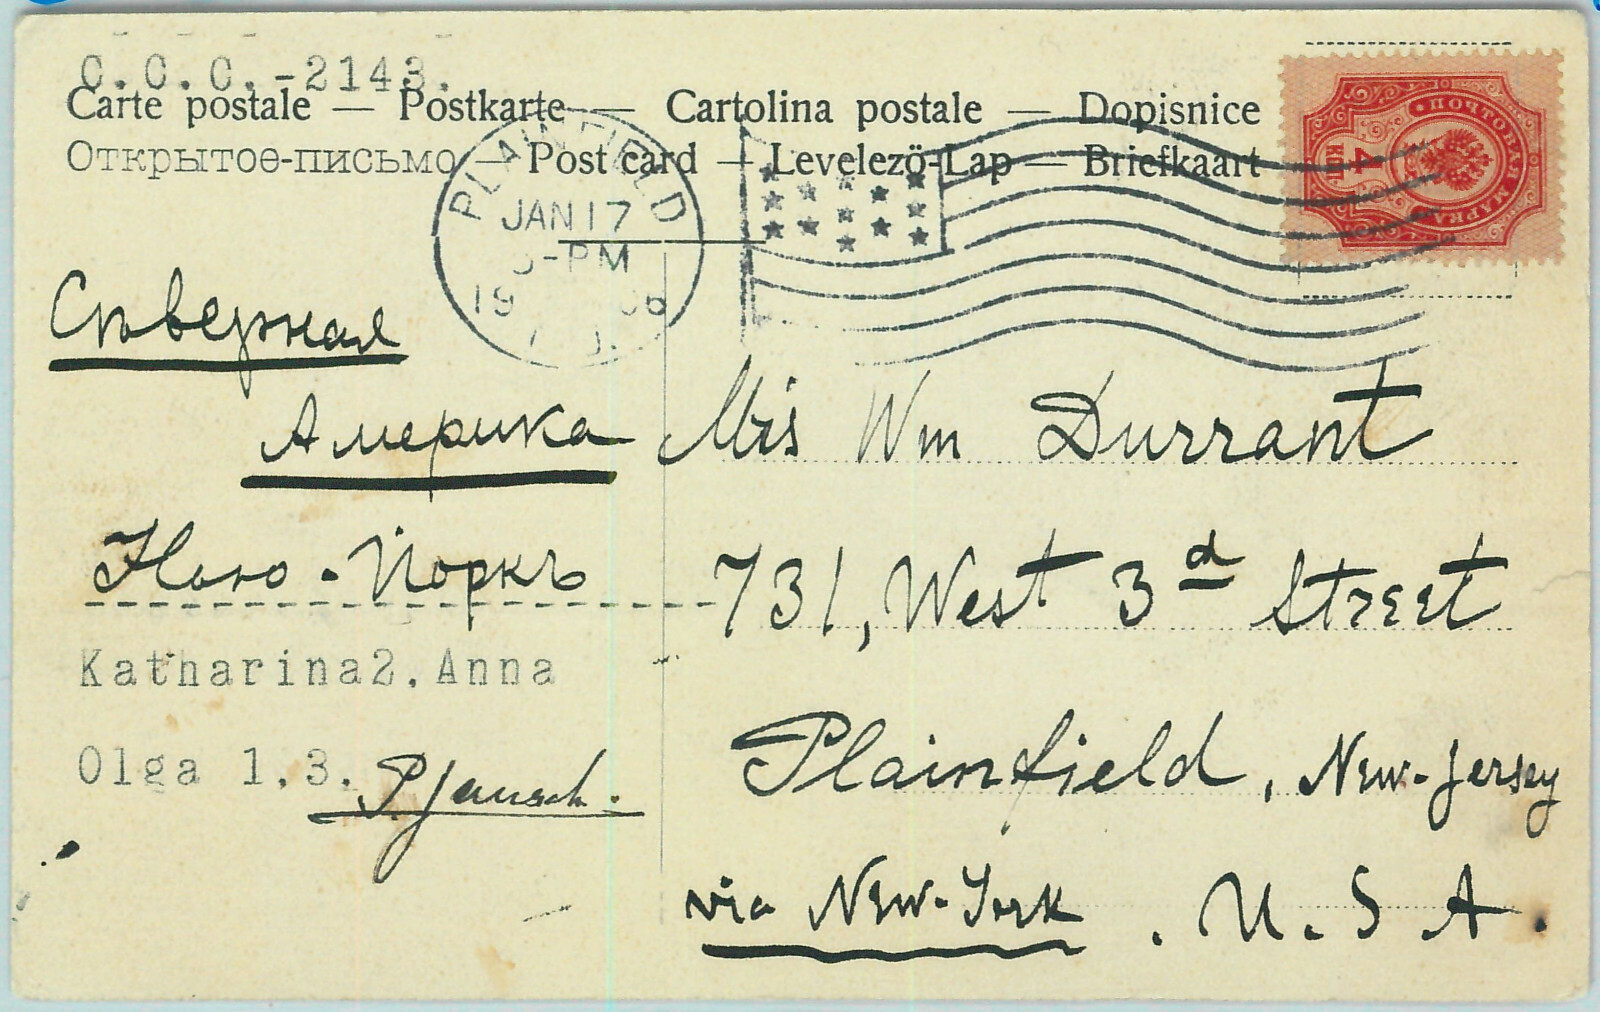 C.C.C.-2143.
Carte postale — Postkarte — Cartolina postale — Dopisnice
Открытое-письмо — Post card — Levelezö-Lap — Briefkaart
ПОЧТОВАЯ МАРКА
4 КОП
PLAINFIELD
JAN 17
-PM
19 06
J.
Сѣверная
Америка
Нью-Йоркъ
Katharina2.Anna
Olga 1.3.
Miss Wm Durrant
731, West 3d Street
Plainfield, New-Jersey
via New-York. U.S.A.